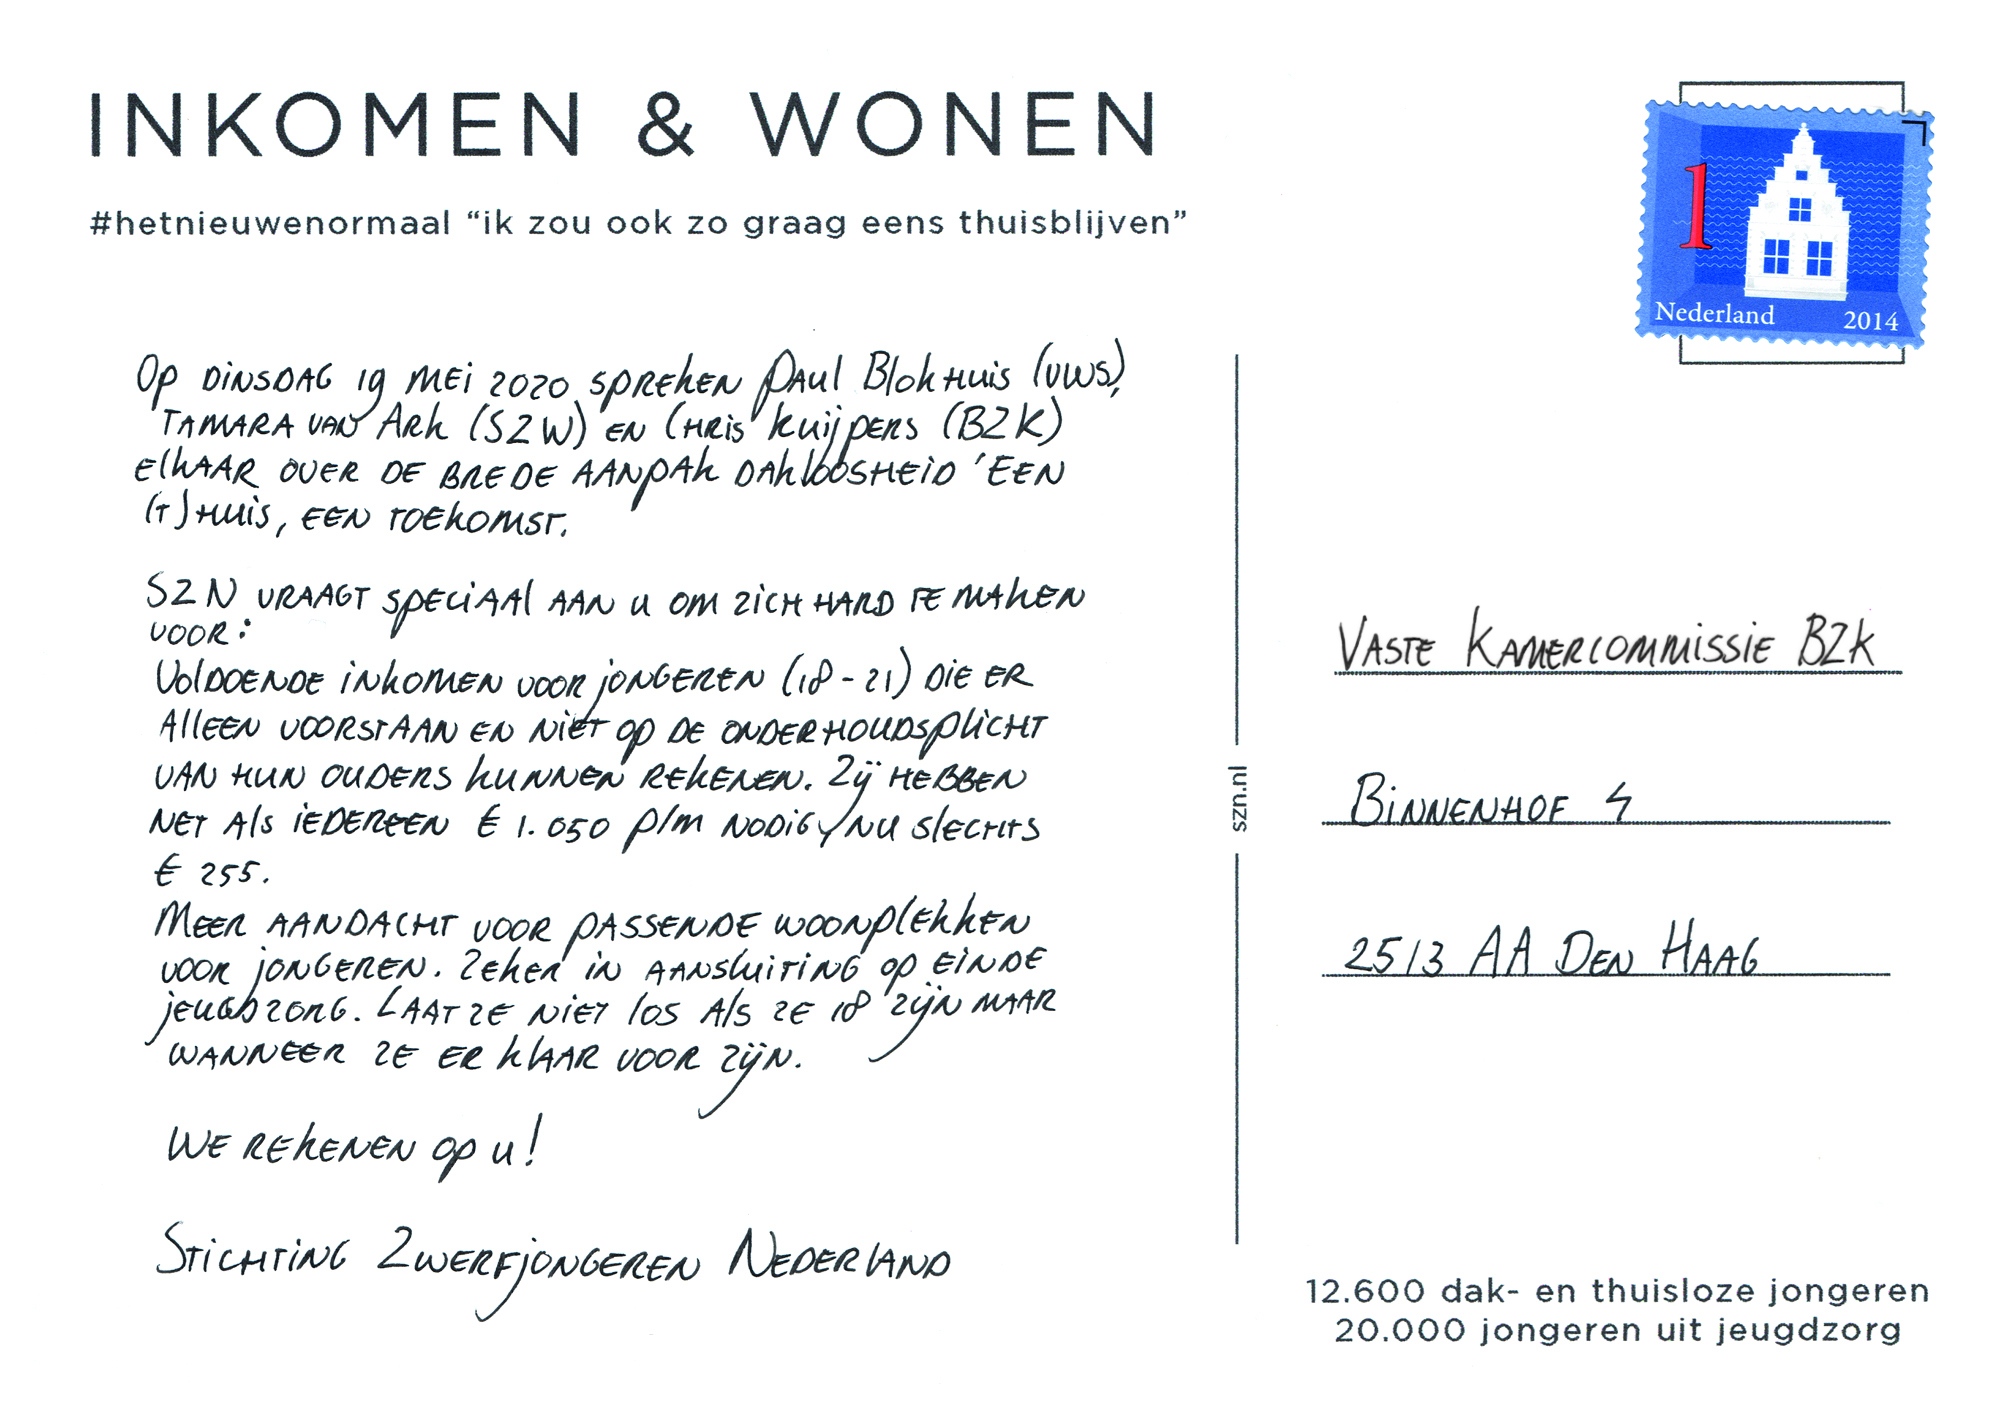 INKOMEN & WONEN
#hetnieuwenormaal “ik zou ook zo graag eens thuisblijven”
1
Nederland 2014
Op dinsdag 19 mei 2020 spreken Paul Blokhuis (VWS),
Tamara van Ark (SZW) en Chris Kuijpers (BZK)
elkaar over de brede aanpak dakloosheid 'Een
(t)huis, een toekomst.
SZN vraagt speciaal aan u om zich hard te maken
voor:
Voldoende inkomen voor jongeren (18-21) die er
alleen voorstaan en niet op de onderhoudsplicht
van hun ouders kunnen rekenen. Zij hebben
net als iedereen € 1.050 p/m nodig, nu slechts
€ 255.
Meer aandacht voor passende woonplekken
voor jongeren. Zeker in aansluiting op einde
jeugdzorg. Laat ze niet los als ze 18 zijn maar
wanneer ze er klaar voor zijn.
We rekenen op u!
Stichting Zwerfjongeren Nederland
szn.nl
Vaste Kamercommissie BZK
Binnenhof 4
2513 AA Den Haag
12.600 dak- en thuisloze jongeren
20.000 jongeren uit jeugdzorg